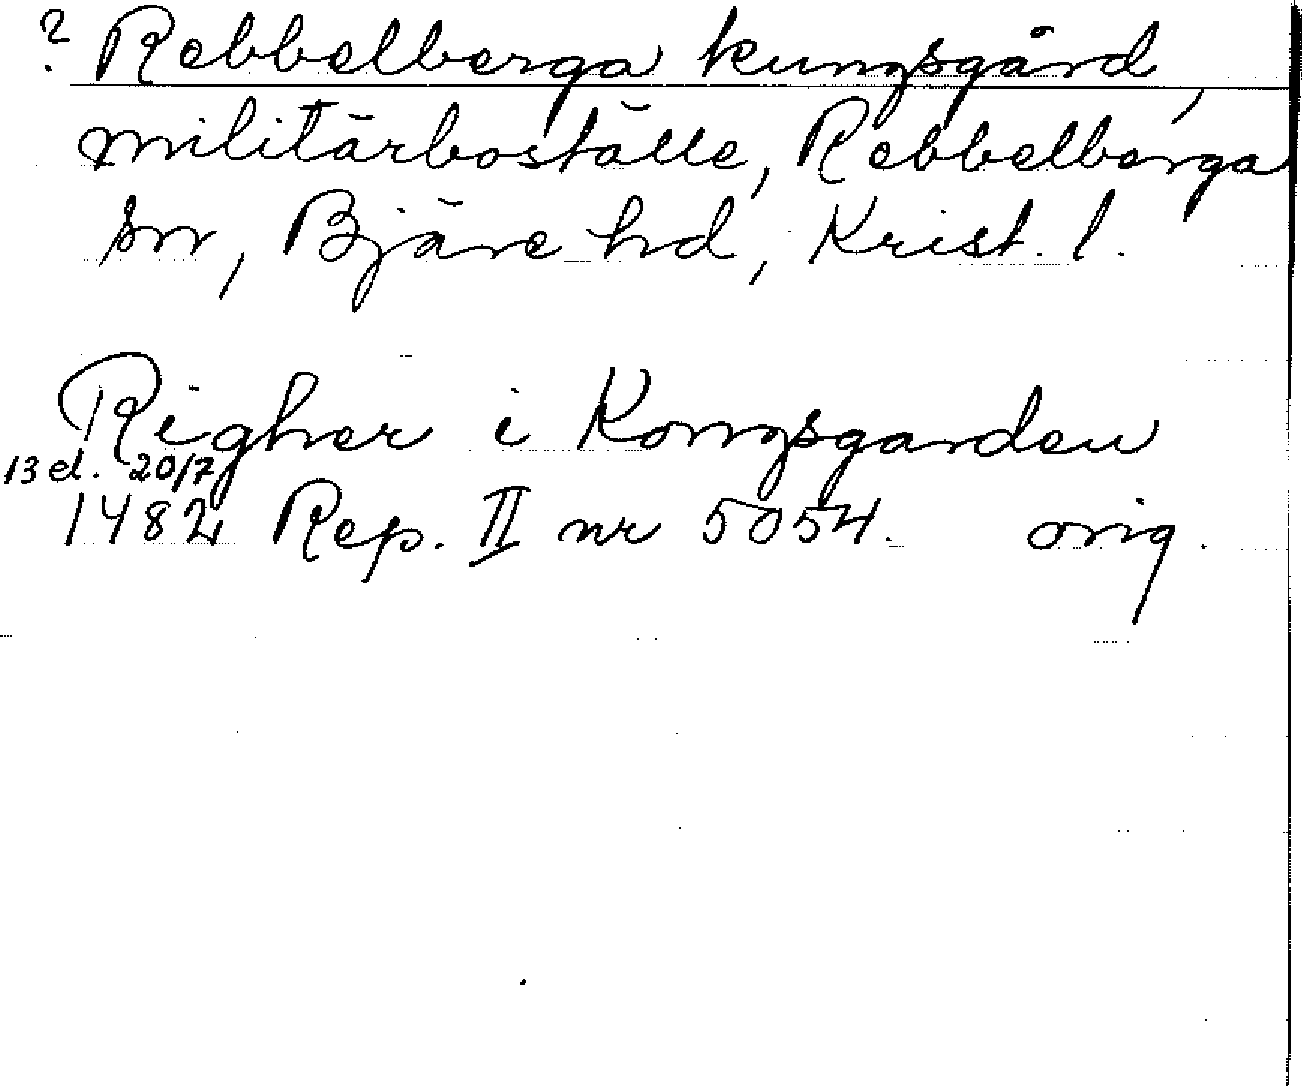 ? Rebbelberga kungsgård,
militärboställe, Rebbelberga
sn, Bjäre hd, Krist. l.
Righer i Kongsgarden
13 el. 20/7
1482 Rep. II nr 5054. orig.